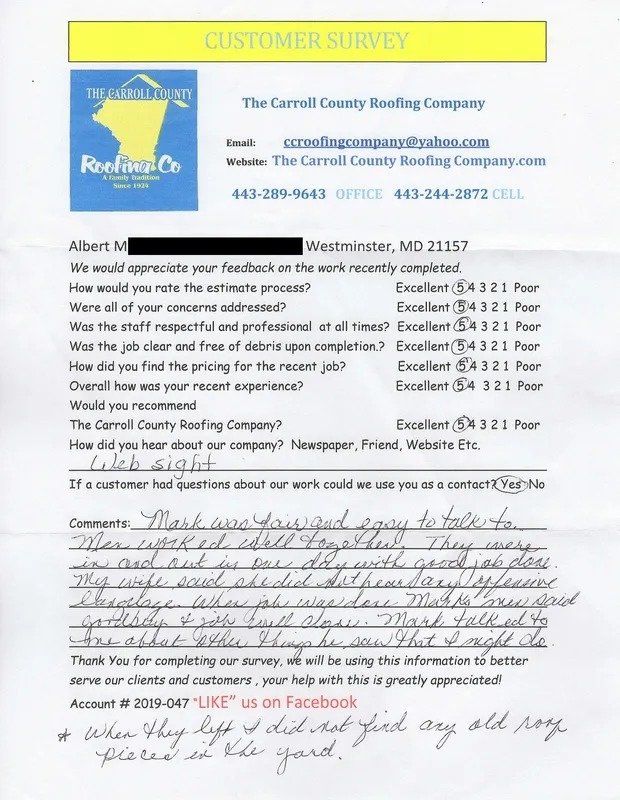 CUSTOMER SURVEY
THE CARROLL COUNTY
Roofing Co
A Family Tradition
Since 1924
The Carroll County Roofing Company
Email: ccroofingcompany@yahoo.com
Website: The Carroll County Roofing Company.com
443-289-9643 OFFICE 443-244-2872 CELL
Albert M Westminster, MD 21157
We would appreciate your feedback on the work recently completed.
How would you rate the estimate process? Excellent 5 4 3 2 1 Poor
Were all of your concerns addressed? Excellent 5 4 3 2 1 Poor
Was the staff respectful and professional at all times? Excellent 5 4 3 2 1 Poor
Was the job clear and free of debris upon completion.? Excellent 5 4 3 2 1 Poor
How did you find the pricing for the recent job? Excellent 5 4 3 2 1 Poor
Overall how was your recent experience? Excellent 5 4 3 2 1 Poor
Would you recommend
The Carroll County Roofing Company? Excellent 5 4 3 2 1 Poor
How did you hear about our company? Newspaper, Friend, Website Etc.
Web sight
If a customer had questions about our work could we use you as a contact? Yes No
Comments: Mark was fair and easy to talk to.
Men worked well together. They were
in and out in one day with good job done.
My wife said she did not hear any offensive
language. When job was done Marks men said
goodbuy & job well done. Mark talked to
me about other things he saw that I might do.
Thank You for completing our survey, we will be using this information to better
serve our clients and customers , your help with this is greatly appreciated!
Account # 2019-047 "LIKE" us on Facebook
* When they left I did not find any old roof
pieces in the yard.